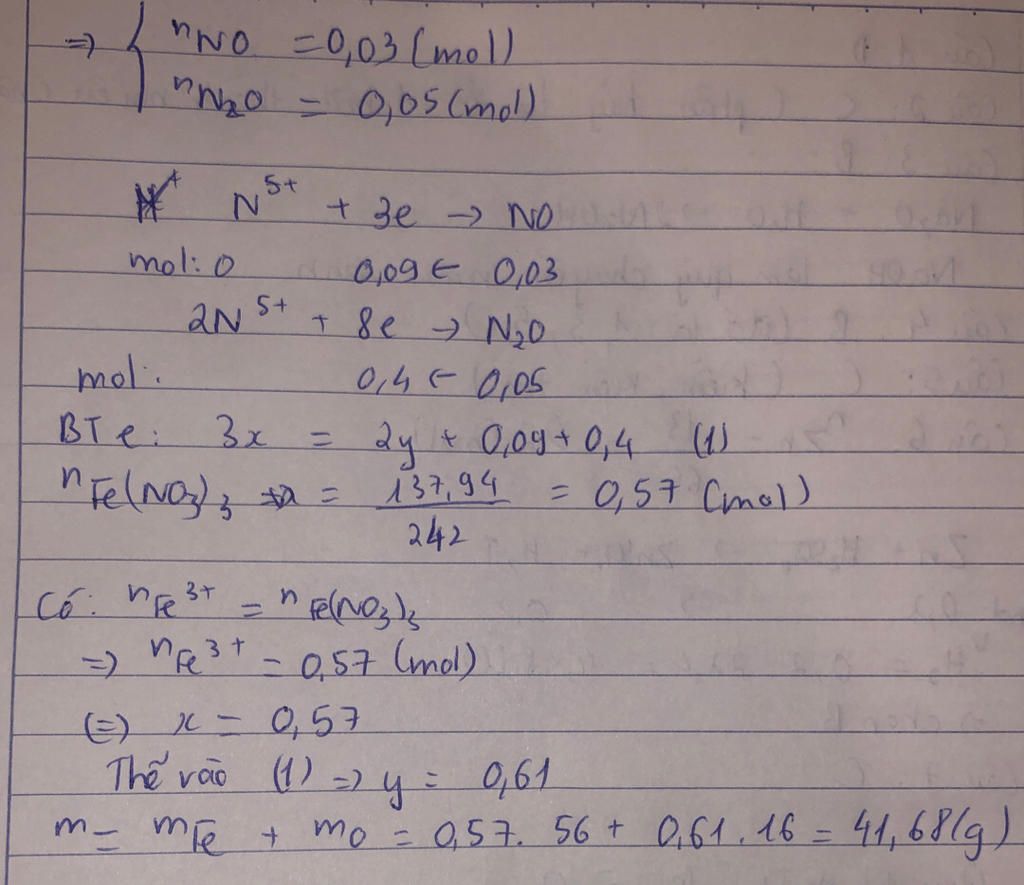 => { nNO = 0,03 (mol)
nN2O = 0,05 (mol)
N5+ + 3e -> NO
mol: 0 0,09 <- 0,03
2N5+ + 8e -> N2O
mol: 0,4 <- 0,05
BTe: 3x = 2y + 0,09 + 0,4 (1)
nFe(NO3)3 = 137,94/242 = 0,57 (mol)
Có: nFe3+ = nFe(NO3)3
=> nFe3+ = 0,57 (mol)
(=) x = 0,57
Thế vào (1) => y = 0,61
m = mFe + mO = 0,57. 56 + 0,61.16 = 41,68(g)